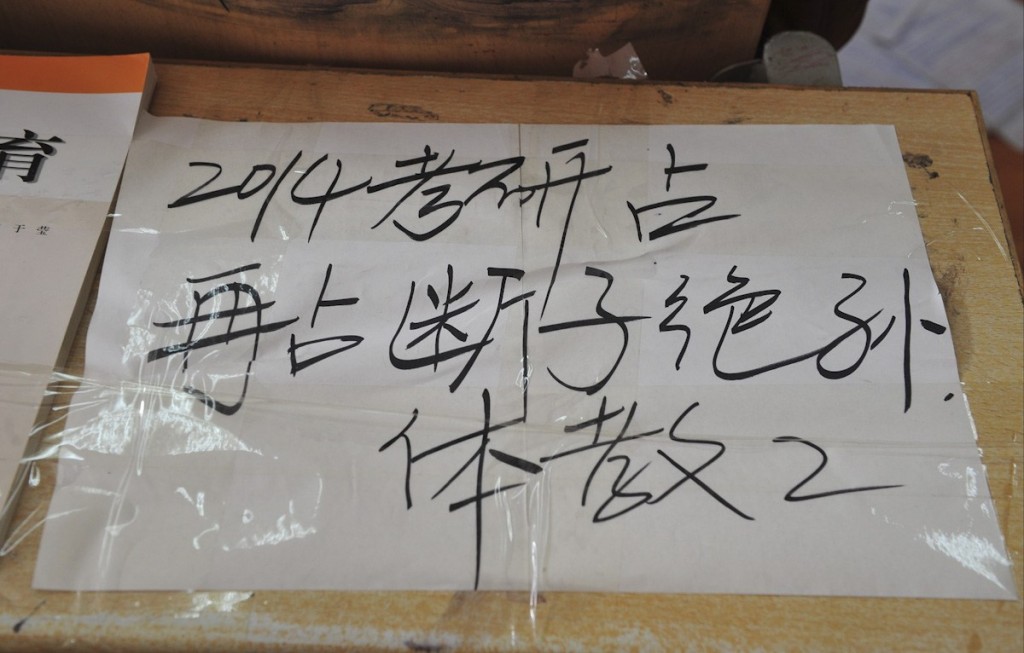 育
于莹
2014考研占
再占断子绝孙.
体教2